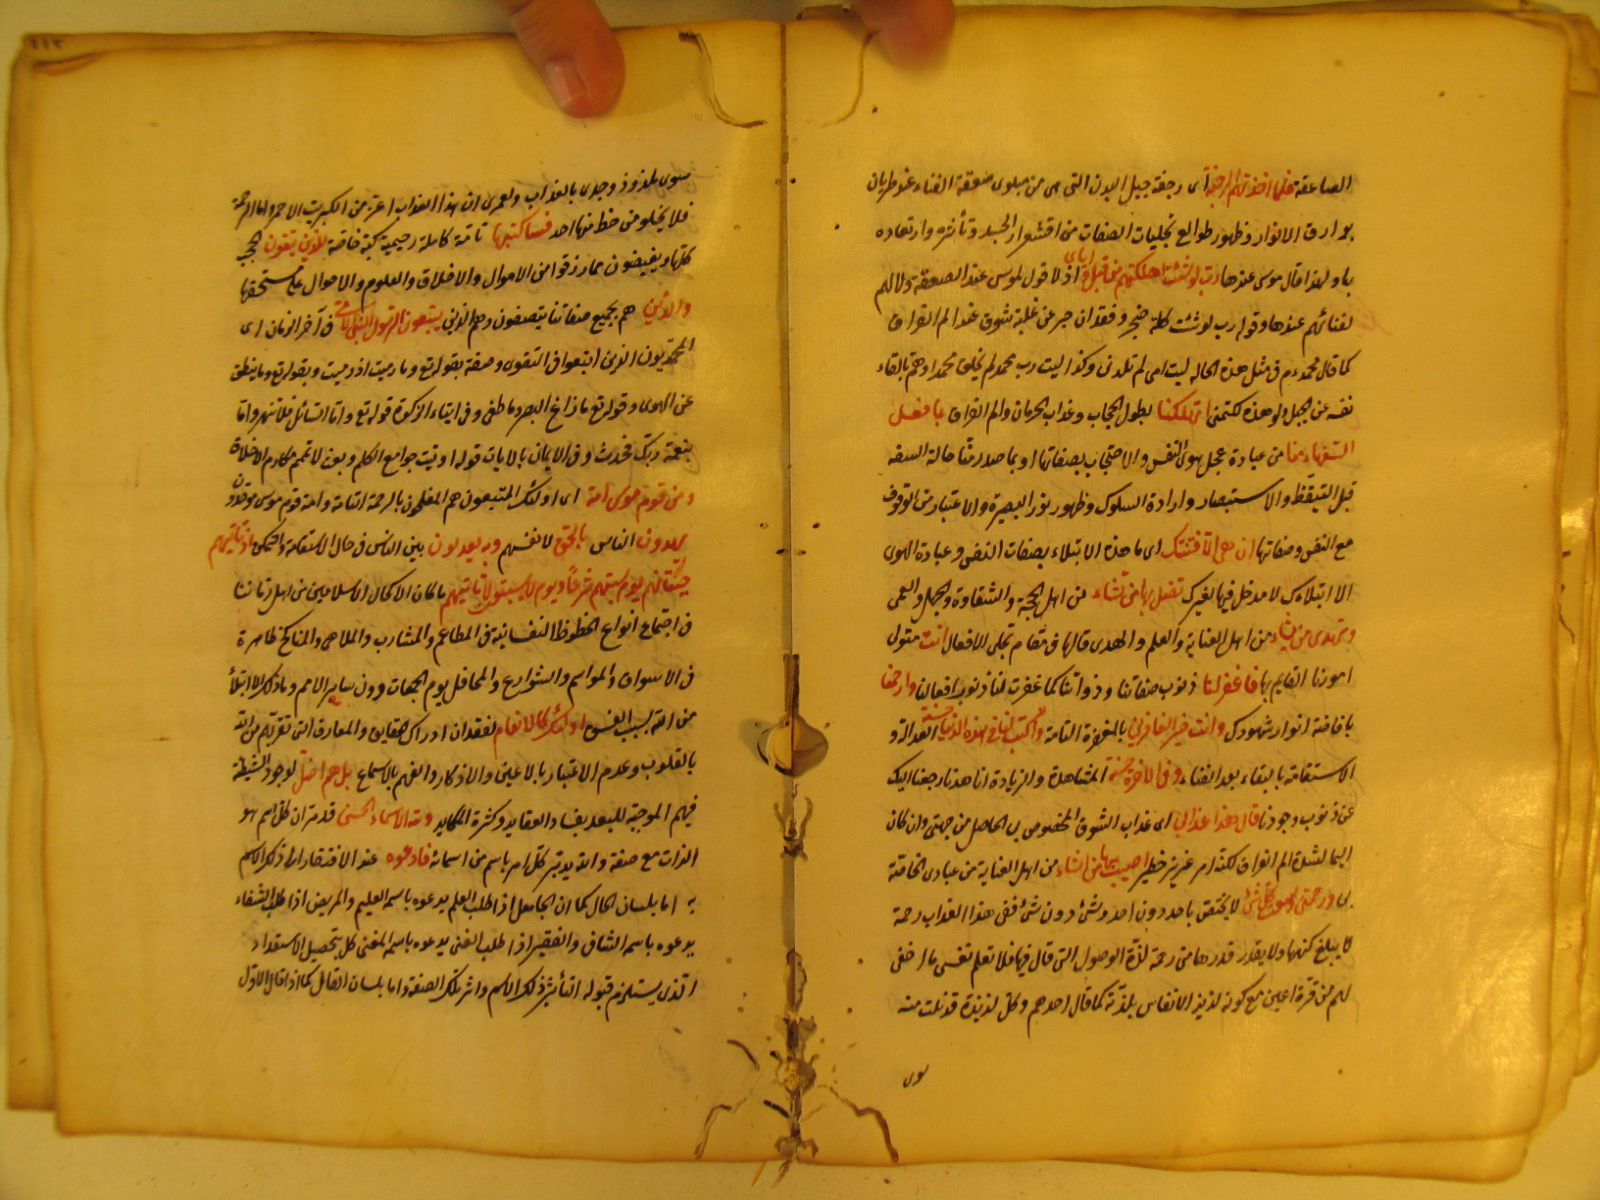 الصاعقة فلما اخذتهم الرجفة اى رجفة جبل البدن التى هى من مبادى صعقة الفناء عند طريان
بوارق الانوار وظهور طوالع تجليات الصفات من اقشعرار الجسد وتأثره وارتعاده
بها ولهذا قال موسى عندها رب لو شئت اهلكتهم من قبل واياى اذ لا قول لموسى عند الصعقة ولا لهم
لفنائهم عندها وقوله رب لو شئت كلمة ضجر وفقدان صبر عن غلبة شوق عند الم الفراق
كما قال محمد ءم فى مثل هذه الحالة ليت امى لم تلدنى وكذا ليت رب محمد لم يخلق محمدا وهم بالقاء
نفسه عن الجبل ولو هذه للتمنى اتهلكنا بطول الحجاب وعذاب الحرمان والم الفراق بما فعل
السفهاء منا من عبادة عجل هوى النفس والاحتجاب بصفاتها او بما صدر منا حالة السفه
قبل التيقظ والاستبصار وارادة السلوك وظهور نور البصيرة والاعتبار من الوقوف
مع النفس وصفاتها ان هى الا فتنتك اى ما هذه الابتلاء بصفات النفس وعبادة الهوى
الا ابتلاءك لا مدخل فيها لغيرك تضل بها من تشاء من اهل الحجبة والشقاوة والجهل والعمى
وتهدى من تشاء من اهل العناية والعلم والهدى قالها فى مقام تجلى الافعال انت متولى
امورنا القايم بها فاغفر لنا ذنوب صفاتنا وذواتنا كما غفرت لنا ذنوب افعالنا وارحمنا
بافاضة انوار شهودك وانت خير الغافرين بالمغفرة التامة واكتب لنا فى هذه الدنيا حسنة العدالة و
الاستقامة بالبقاء بعد الفناء وفى الآخرة حسنة المشاهدة والزيادة انا هدنا رجعنا اليك
عن ذنوب وجودنا قال هذا عذابى اى عذاب الشوق المخصوص بى الحاصل من جهتى وان كان
اليما لشدة الم الفراق لكنه امر عزيز خطير اصيب بها من اشاء من اهل العناية من عبادى الخاصة
بى ورحمتى وسعت كل شئ لا يختص باحد دون احد وشئ دون شئ ففى هذا العذاب رحمة
لا يبلغ كنهها ولا يقدر قدرها من رحمة لذة الوصول التى قال فيها فلا تعلم نفس ما اخفى
لهم من قرة اعين مع كونه لذيذ الانفاس بلذته كما قال احدهم وكل لذيذة قد نلت منه
سوى
سوى ملذوذ وجدى بالعذاب ولعمرى ان هذا العذاب اعز من الكبريت الاحمر واما الرحمة
فلا يخلو من حظ منها احد فساكتبها تامة كاملة رحيمية كتبة خاصة للذين يتقون الحجب
كلها ويفيضون مما رزقوا من الاموال والاخلاق والعلوم والاحوال على مستحقها
والذين هم بجميع صفاتنا يتصفون وهم الذين يتبعون الرسول النبى الامى فى آخر الزمان اى
المحمديون الذين اتبعوا فى التقوى وصفه بقوله تع وما رميت اذ رميت وبقوله تع وما ينطق
عن الهوى وقوله تع ما زاغ البصر وما طغى وفى ايتاء الزكوة قوله تع واما السائل فلا تنهر واما
بنعمة ربك فحدث وفى الايمان بالايات قوله اوتيت جوامع الكلم وبعثت لاتمم مكارم الاخلاق
ومن قوم موسى امة اى اولئك المتبعون هم المفلحون بالرحمة التامة وامة قوم موسى موحدون
يهدون الناس بالحق لانفسهم وبه يعدلون بين الناس فى حال الاستقامة والتمكين اذ تأتيهم
حيتانهم يوم سبتهم شرعا ويوم لا يسبتون لا تأتيهم ما كان الا كحال الاسلاميين من اهل زماننا
فى اجتماع انواع الحظوظ النفسانية فى المطاعم والمشارب والملاهى والمناكح ظاهرة
فى الاسواق والمواسم والشوارع والمحافل يوم الجمعات دون ساير الايام وما ذلك الا ابتلاء
من الله بسبب الفسق اولئك كالانعام لفقدان ادراك الحقايق والمعارف التى تقربهم من الله
بالقلوب وعدم الاعتبار بالاعين والاذكار والفهم بالاسماع بل هم اضل لوجود الشيطنة
فيهم الموجبة للبعد بفساد العقايد وكثرة المكايد ولله الاسماء الحسنى قد مر ان كل اسم هو
الذات مع صفة والله يدبر كل امر باسم من اسمائه فادعوه عند الافتقار الى ذلك الاسم
به اما بلسان الحال كما ان الجاهل اذا طلب العلم يدعوه باسمه العليم والمريض اذا طلب الشفاء
يدعوه باسمه الشافى والفقير اذا طلب الغنى يدعوه باسمه المغنى كل بتحصيل الاستعداد
الذى يستلزم قبوله لتأثير ذلك الاسم واثر تلك الصفة واما بلسان القال كما اذا قال الاول